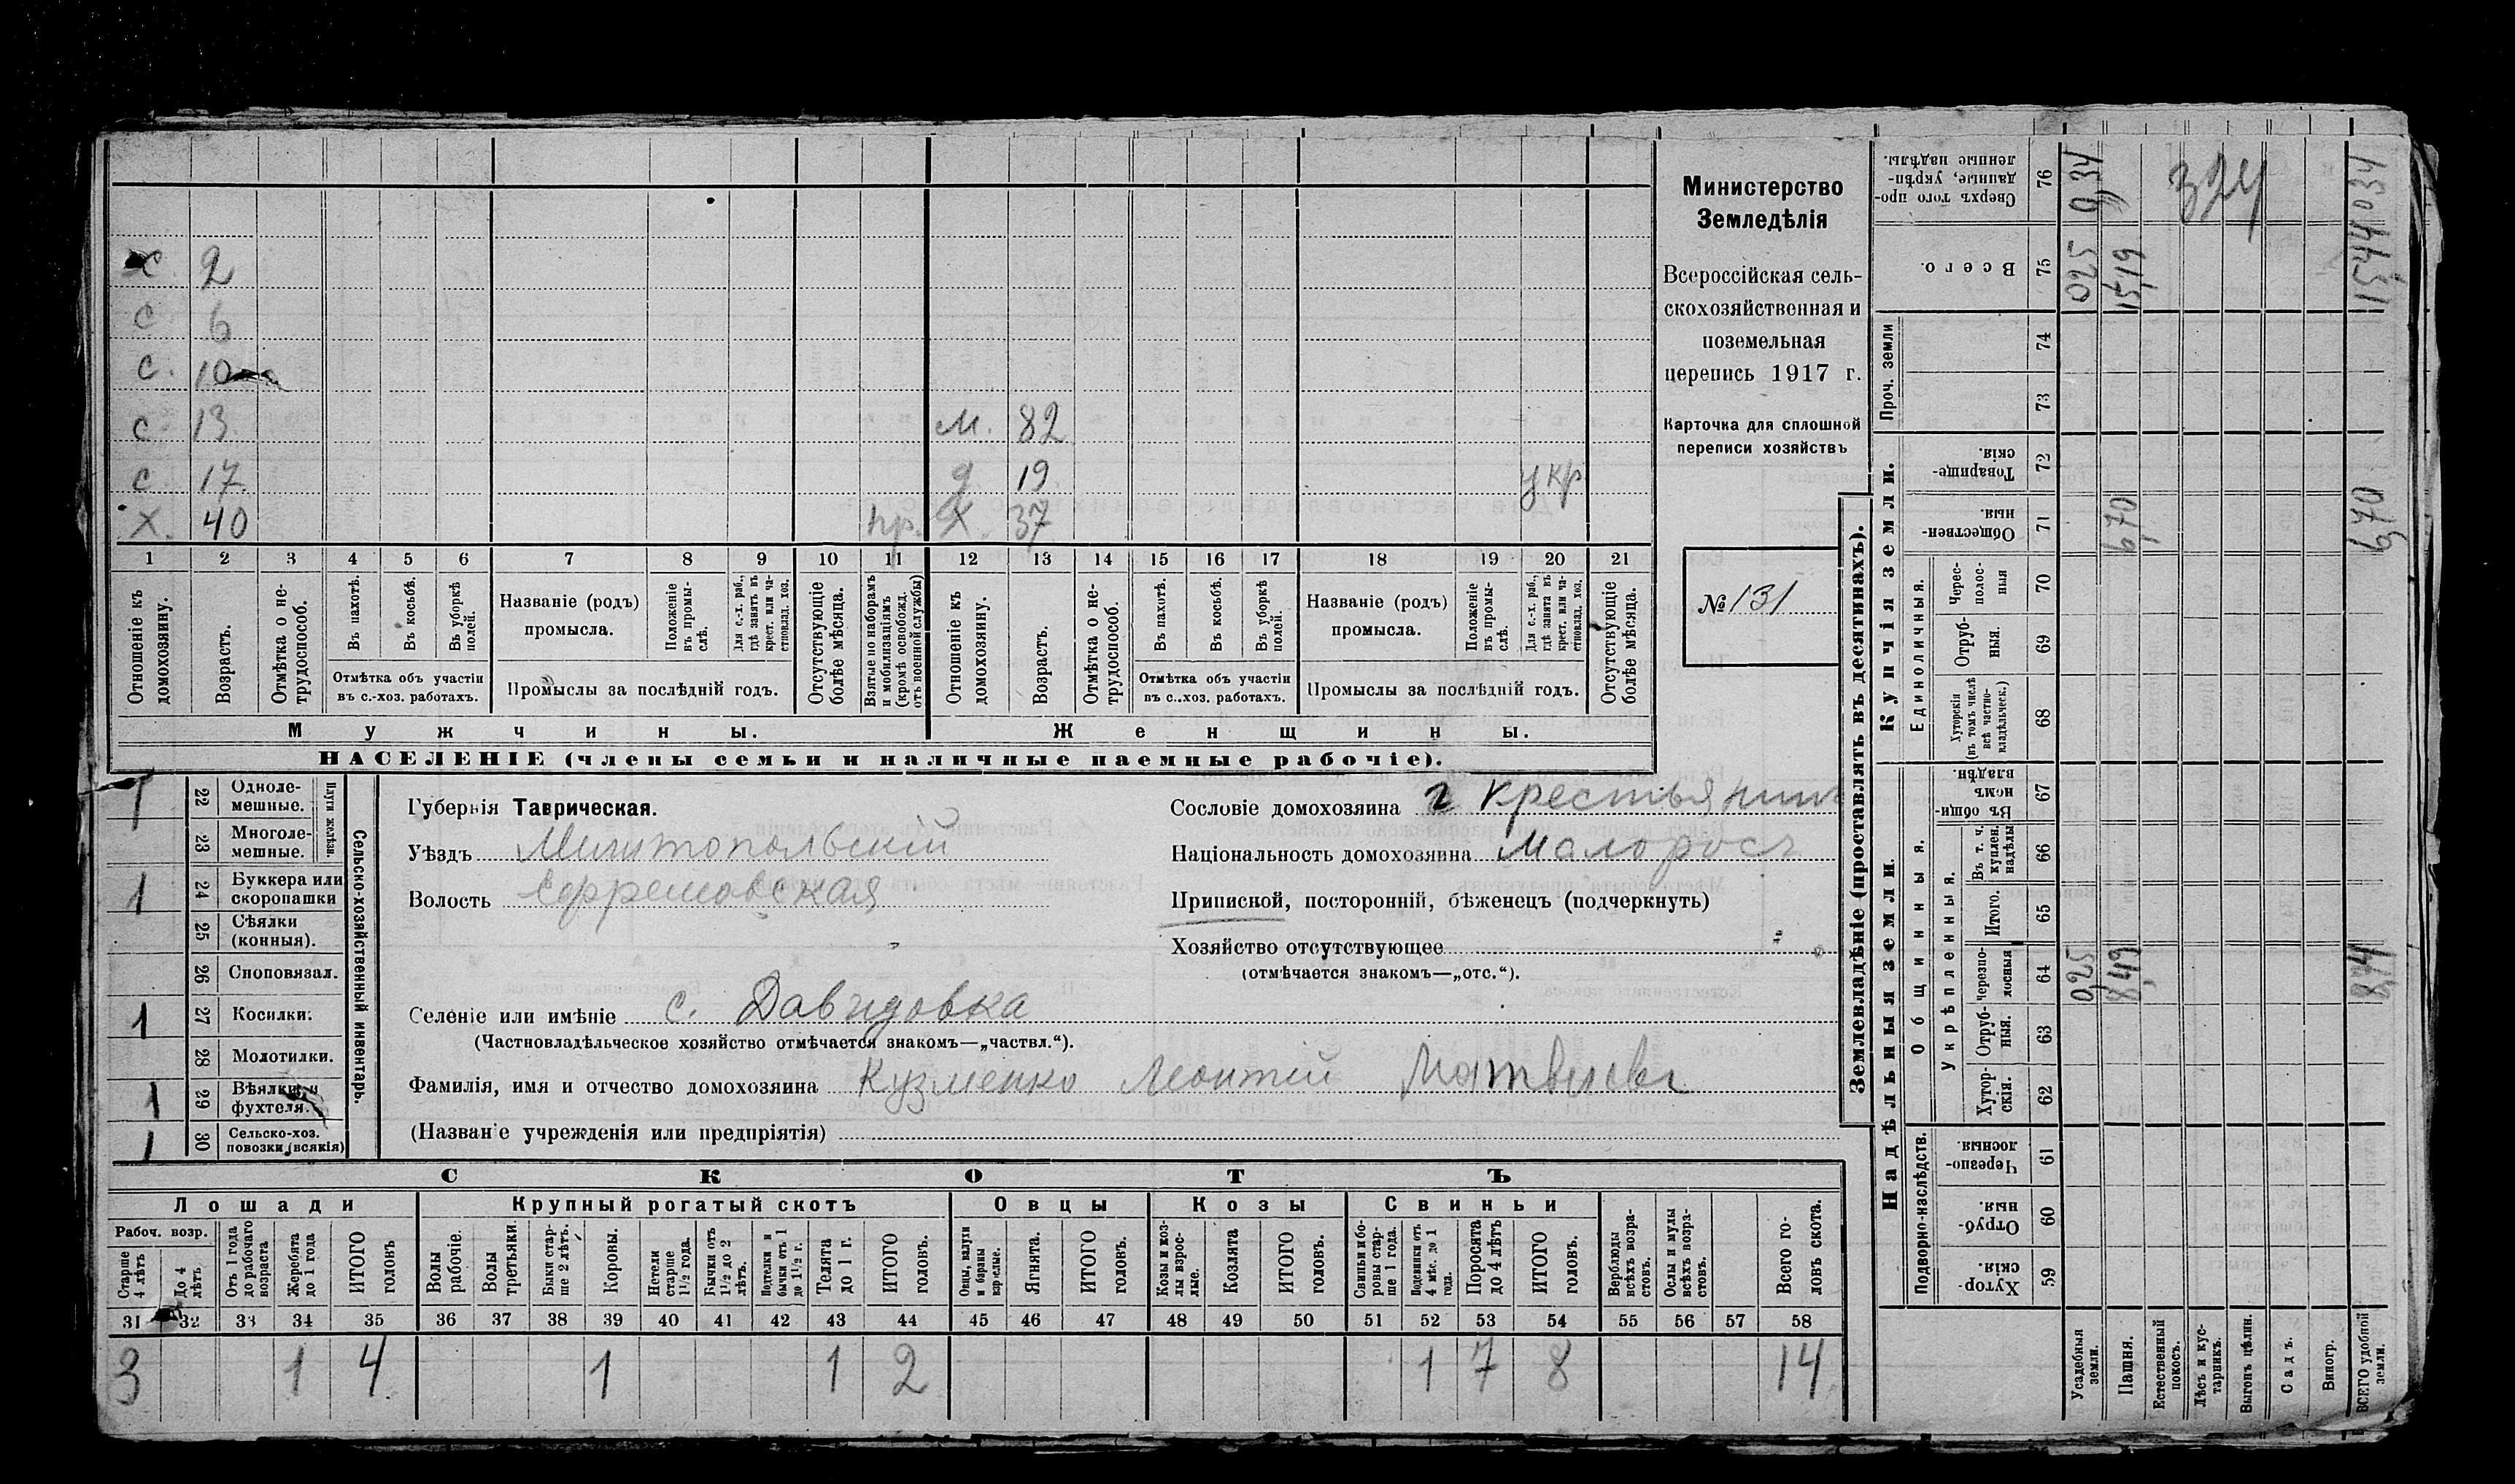 Министерство
Земледѣлія
Всероссійская сель-
скохозяйственная и
поземельная
перепись 1917 г.
Карточка для сплошной
переписи хозяйствъ
№ 131
с. 2
с 6
с. 10
с. 13 м. 82
с 17 д 19 укр
х. 40 пр. х. 37
1 2 3 4 5 6 7 8 9 10 11 12 13 14 15 16 17 18 19 20 21
Отношеніе къ домохозяину.
Возрастъ.
Отмѣтка о не-трудоспособ.
Въ пахотѣ.
Въ косьбѣ.
Въ уборкѣ полей.
Отмѣтка объ участіи
въ с.-хоз. работахъ.
Названіе (родъ)
промысла.
Положеніе въ промы-слѣ.
Для с.-х. раб., гдѣ занятъ въ крест. или ча-стновлад. хоз.
Промыслы за послѣдній годъ.
Отсутствующіе болѣе мѣсяца.
Взятые по наборамъ и мобилизаціямъ (кромѣ освобожд. отъ военной службы)
Отношеніе къ домохозяину.
Возрастъ.
Отмѣтка о не-трудоспособ.
Въ пахотѣ.
Въ косьбѣ.
Въ уборкѣ полей.
Отмѣтка объ участіи
въ с.-хоз. работахъ.
Названіе (родъ)
промысла.
Положеніе въ промы-слѣ.
Для с.-х. раб., гдѣ занята въ крест. или ча-стновлад. хоз.
Промыслы за послѣдній годъ.
Отсутствующіе болѣе мѣсяца.
Мужчины. Женщины.
НАСЕЛЕНІЕ (члены семьи и наличные наемные рабочіе).
Сельско-хозяйственный инвентарь.
Плуги желѣзн.
1 22 Одноле-мешные.
23 Многоле-мешные.
1 24 Буккера или скоропашки
25 Сѣялки (конныя).
26 Сноповязал.
1 27 Косилки.
28 Молотилки.
1 29 Вѣялки и фухтеля.
1 30 Сельско-хоз. повозки (всякія)
Губернія Таврическая.
Уѣздъ Мелитопольскій
Волость Ефремовская
Сословіе домохозяина крестьянинъ
Національность домохозяина Малоросъ
Приписной, посторонній, бѣженецъ (подчеркнуть)
Хозяйство отсутствующее
(отмѣчается знакомъ—„отс.“).
Селеніе или имѣніе с. Давидовка
(Частновладѣльческое хозяйство отмѣчается знакомъ—„частвл.“).
Фамилія, имя и отчество домохозяина Кузменко Леонтій Матвеевъ
(Названіе учрежденія или предпріятія)
СКОТЪ
Лошади Крупный рогатый скотъ Овцы Козы Свиньи
Рабоч. возр.
Старше 4 лѣтъ
До 4 лѣтъ
Отъ 1 года до рабочаго возраста
Жеребята до 1 года
ИТОГО головъ
Волы рабочіе.
Волы третьяки.
Быки стар-ше 2 лѣтъ.
Коровы.
Нетели старше 1½ года.
Бычки отъ 1½ до 2 лѣтъ.
Подтелки и бычки отъ 1 до 1½ г.
Телята до 1 г.
ИТОГО головъ.
Овцы, валухи и бараны взрослые.
Ягнята.
ИТОГО головъ.
Козы и коз-лы взрос-лые.
Козлята
ИТОГО головъ.
Свиньи и бо-ровы стар-ше 1 года.
Подсвинки отъ 4 мѣс. до 1 года.
Поросята до 4 лѣтъ
ИТОГО головъ.
Верблюды всѣхъ возра-стовъ.
Ослы и мулы всѣхъ возра-стовъ.
Всего го-ловъ скота.
31 32 33 34 35 36 37 38 39 40 41 42 43 44 45 46 47 48 49 50 51 52 53 54 55 56 57 58
3 1 4 1 1 2 1 7 8 14
Землевладѣніе (проставлять въ десятинахъ).
Купчія земли.
Проч. земли
Единоличныя.
Надѣльныя земли.
Общинныя.
Укрѣпленныя.
Подворно-наслѣдств.
Сверхъ того про-данные, укрѣп-ленные надѣлы. 76 0,34 0,34
324
Всего. 75 0,25 15,19 15,44
74
73
Товарище-скія. 72
Обществен-ныя. 71 6,70 6,70
Черес-полос-ныя 70
Отруб-ныя. 69
Хуторскія (въ томъ числѣ всѣ частно-владѣльческ.) 68
Въ общи-номъ владѣн. 67
Въ т. ч. куплен. надѣлы 66
Итого. 65
черезпо-лосныя 64 0,25 8,49 8,74
Отруб-ныя. 63
Хутор-скія. 62
Черезпо-лосныя. 61
Отруб-ныя. 60
Хутор-скія. 59
Усадебныя земли.
Пашня.
Естественный покосъ.
Лѣсъ и кус-тарникъ.
Выгонъ цѣлин.
Садъ.
Виногр.
ВСЕГО удобной земли.